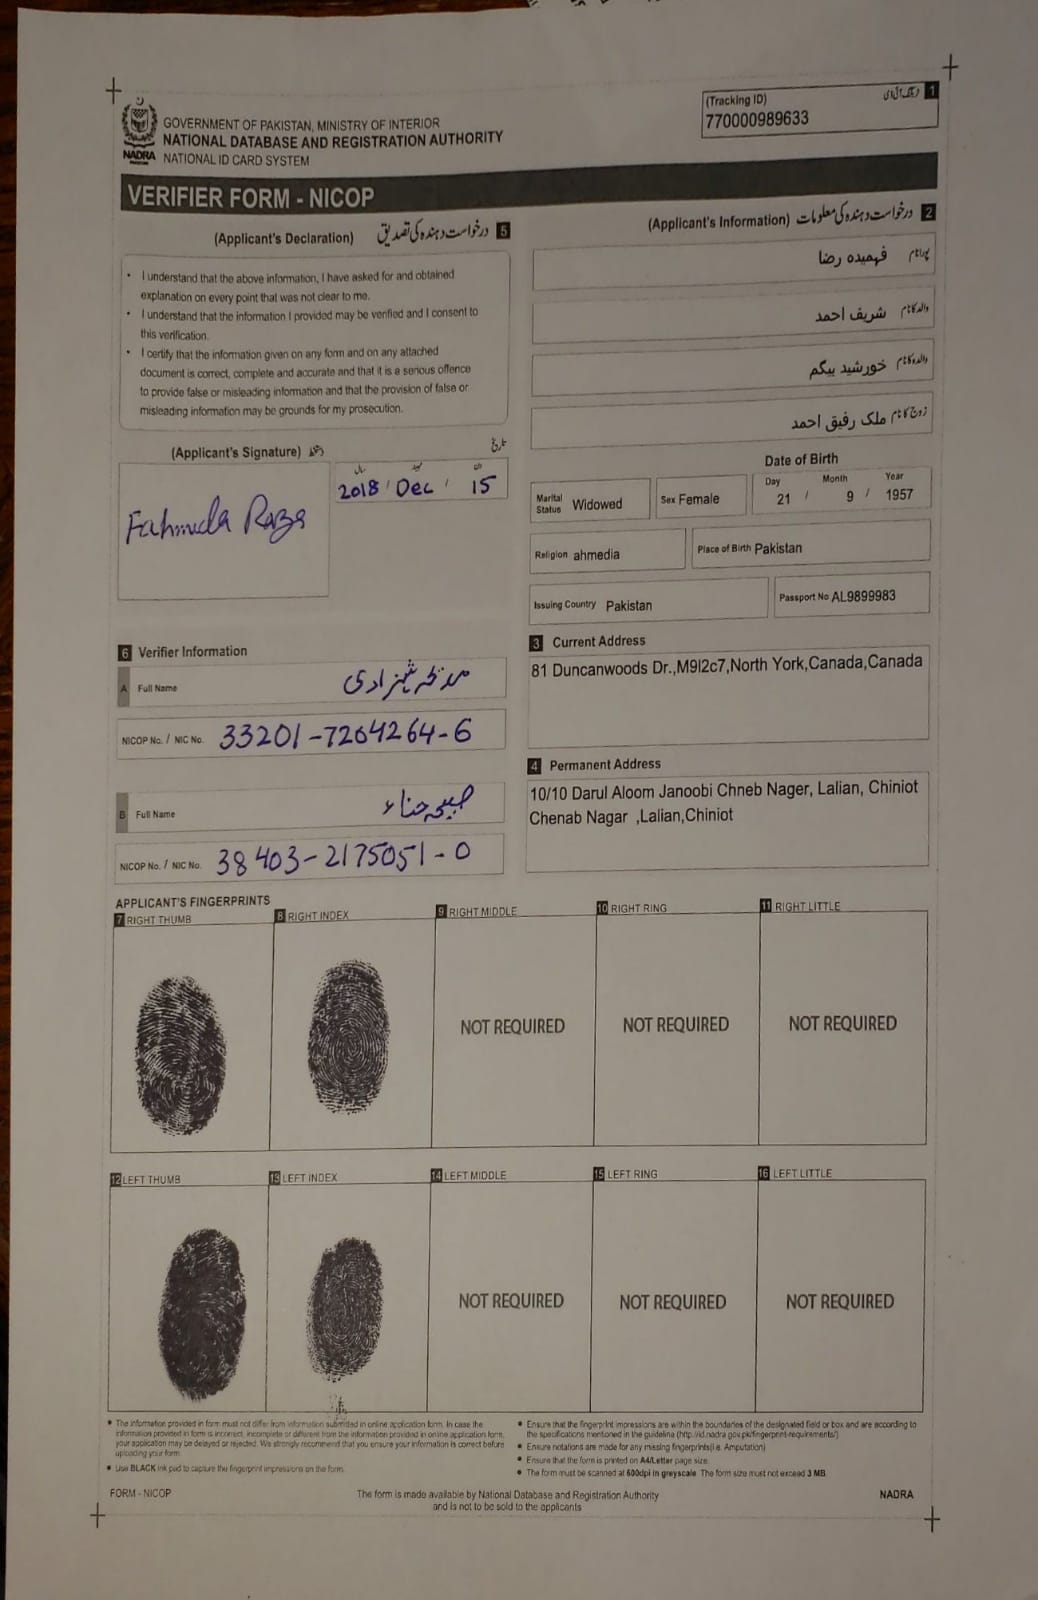 (Tracking ID) ٹریکنگ آئی ڈی 1
770000989633
GOVERNMENT OF PAKISTAN, MINISTRY OF INTERIOR
NATIONAL DATABASE AND REGISTRATION AUTHORITY
NADRA NATIONAL ID CARD SYSTEM
VERIFIER FORM - NICOP
(Applicant's Declaration) درخواست دہندہ کی تصدیق 5
I understand that the above information, I have asked for and obtained
explanation on every point that was not clear to me.
I understand that the information I provided may be verified and I consent to
this verification.
I certify that the information given on any form and on any attached
document is correct, complete and accurate and that it is a serious offence
to provide false or misleading information and that the provision of false or
misleading information may be grounds for my prosecution.
(Applicant's Signature) دستخط تاریخ
سال مہینہ دن
2018 / Dec / 15
Fahmida Raza
(Applicant's Information) درخواست دہندہ کی معلومات 2
پورا نام فہمیدہ رضا
والد کا نام شریف احمد
والدہ کا نام خورشید بیگم
زوج کا نام ملک رفیق احمد
Date of Birth
Day Month Year
21 / 9 / 1957
Marital Status Widowed
Sex Female
Religion ahmedia
Place of Birth Pakistan
Issuing Country Pakistan
Passport No AL9899983
6 Verifier Information
A Full Name مدیحہ شہزادی
NICOP No. / NIC No. 33201-7264264-6
B Full Name صبیحہ حناء
NICOP No. / NIC No. 38403-2175051-0
3 Current Address
81 Duncanwoods Dr.,M9l2c7,North York,Canada,Canada
4 Permanent Address
10/10 Darul Aloom Janoobi Chneb Nager, Lalian, Chiniot
Chenab Nagar ,Lalian,Chiniot
APPLICANT'S FINGERPRINTS
7 RIGHT THUMB 8 RIGHT INDEX 9 RIGHT MIDDLE 10 RIGHT RING 11 RIGHT LITTLE
NOT REQUIRED NOT REQUIRED NOT REQUIRED
12 LEFT THUMB 13 LEFT INDEX 14 LEFT MIDDLE 15 LEFT RING 16 LEFT LITTLE
NOT REQUIRED NOT REQUIRED NOT REQUIRED
The information provided in form must not differ from information submitted in online application form. In case the
information provided in form is incorrect, incomplete or different from the information provided in online application form,
your application may be delayed or rejected. We strongly recommend that you ensure your information is correct before
uploading your form.
Use BLACK ink pad to capture the fingerprint impressions on the form.
Ensure that the fingerprint impressions are within the boundaries of the designated field or box and are according to
the specifications mentioned in the guideline (http://id.nadra.gov.pk/fingerprint-requirements/)
Ensure notations are made for any missing fingerprints(i.e. Amputation)
Ensure that the form is printed on A4/Letter page size.
The form must be scanned at 600dpi in greyscale. The form size must not exceed 3 MB.
FORM - NICOP
The form is made available by National Database and Registration Authority
and is not to be sold to the applicants
NADRA